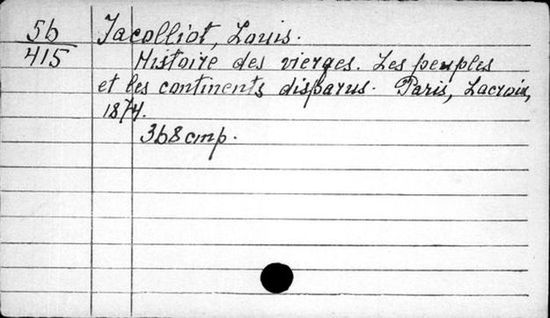 56 Jacolliot, Louis.
415 Histoire des vierges. Les peuples
et les continents disparus. Paris, Lacroix,
1874.
368 стр.